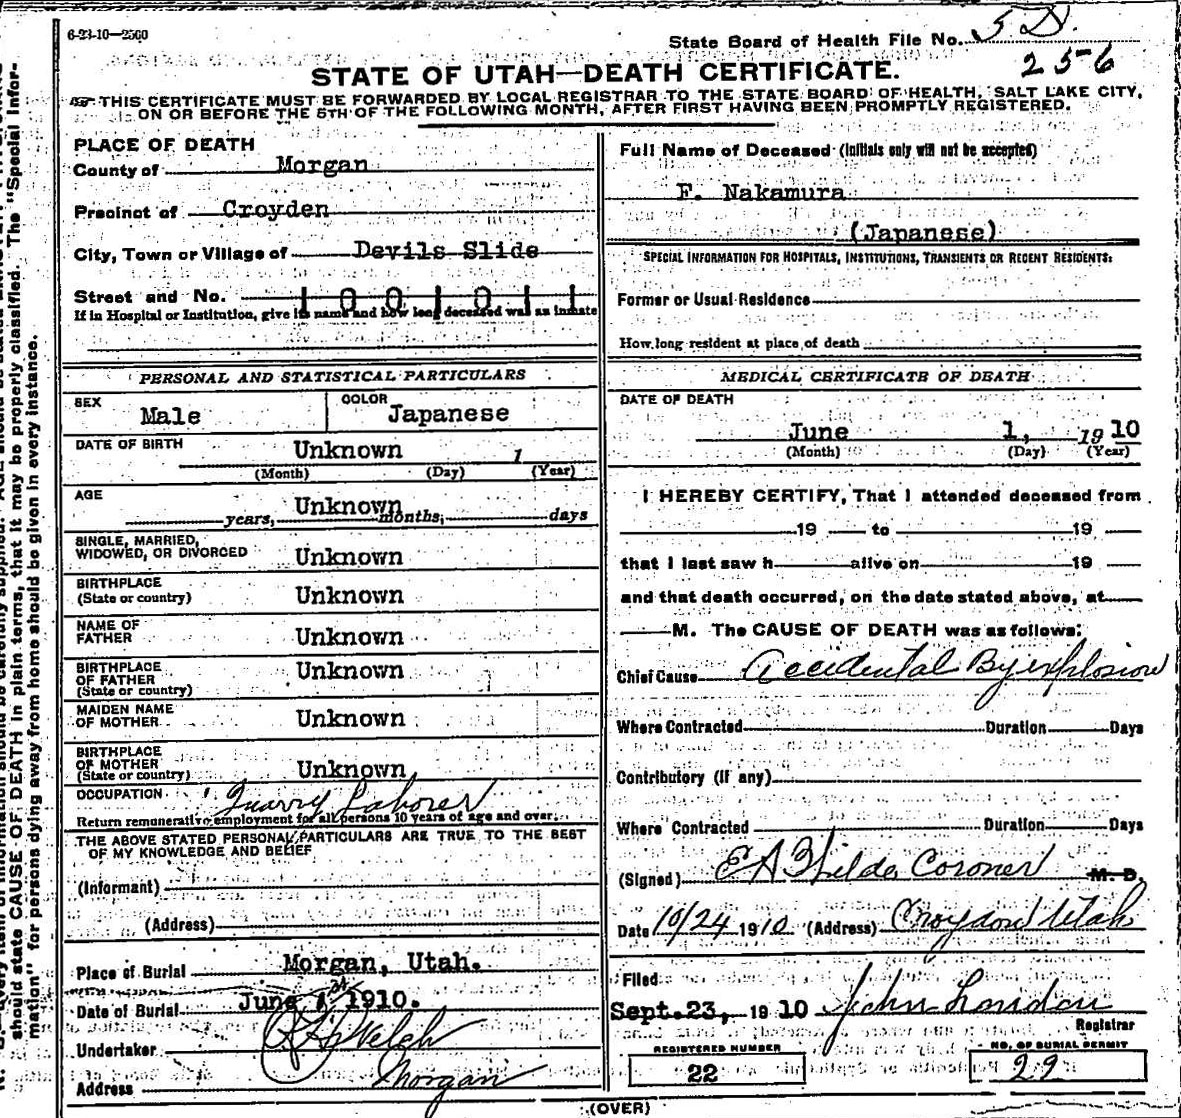 6-23-10—2500
State Board of Health File No. 5 D.
256
STATE OF UTAH—DEATH CERTIFICATE.
THIS CERTIFICATE MUST BE FORWARDED BY LOCAL REGISTRAR TO THE STATE BOARD OF HEALTH, SALT LAKE CITY,
ON OR BEFORE THE 5TH OF THE FOLLOWING MONTH, AFTER FIRST HAVING BEEN PROMPTLY REGISTERED.
PLACE OF DEATH
County of Morgan
Precinct of Croyden
City, Town or Village of Devils Slide
Street and No. 1 0 0 1 0 1 1
If in Hospital or Institution, give its name and how long deceased was an inmate
PERSONAL AND STATISTICAL PARTICULARS
SEX Male COLOR Japanese
DATE OF BIRTH Unknown 1
(Month) (Day) (Year)
AGE Unknown
years, months, days
SINGLE, MARRIED,
WIDOWED, OR DIVORCED Unknown
BIRTHPLACE
(State or country) Unknown
NAME OF
FATHER Unknown
BIRTHPLACE
OF FATHER Unknown
(State or country)
MAIDEN NAME
OF MOTHER Unknown
BIRTHPLACE
OF MOTHER
(State or country) Unknown
OCCUPATION Quarry Laborer
Return remunerative employment for all persons 10 years of age and over.
THE ABOVE STATED PERSONAL PARTICULARS ARE TRUE TO THE BEST
OF MY KNOWLEDGE AND BELIEF
(Informant)
(Address)
Place of Burial Morgan, Utah.
Date of Burial June 1910.
Undertaker Welch
Address Morgan
Full Name of Deceased (Initials only will not be accepted)
F. Nakamura
(Japanese)
SPECIAL INFORMATION FOR HOSPITALS, INSTITUTIONS, TRANSIENTS OR RECENT RESIDENTS:
Former or Usual Residence
How long resident at place of death
MEDICAL CERTIFICATE OF DEATH
DATE OF DEATH
June 1, 1910
(Month) (Day) (Year)
I HEREBY CERTIFY, That I attended deceased from
19 to 19
that I last saw h alive on 19
and that death occurred, on the date stated above, at
M. The CAUSE OF DEATH was as follows:
Chief Cause Accidental By explosion
Where Contracted Duration Days
Contributory (if any)
Where Contracted Duration Days
(Signed) E A Wilde Coroner M. D.
Date 10/24 1910 (Address) Croydon Utah
Filed
Sept. 23, 1910 John London
Registrar
REGISTERED NUMBER
22
NO. OF BURIAL PERMIT
29
(OVER)
should state CAUSE OF DEATH in plain terms, that it may be properly classified. The "Special Infor-
mation" for persons dying away from home should be given in every instance.